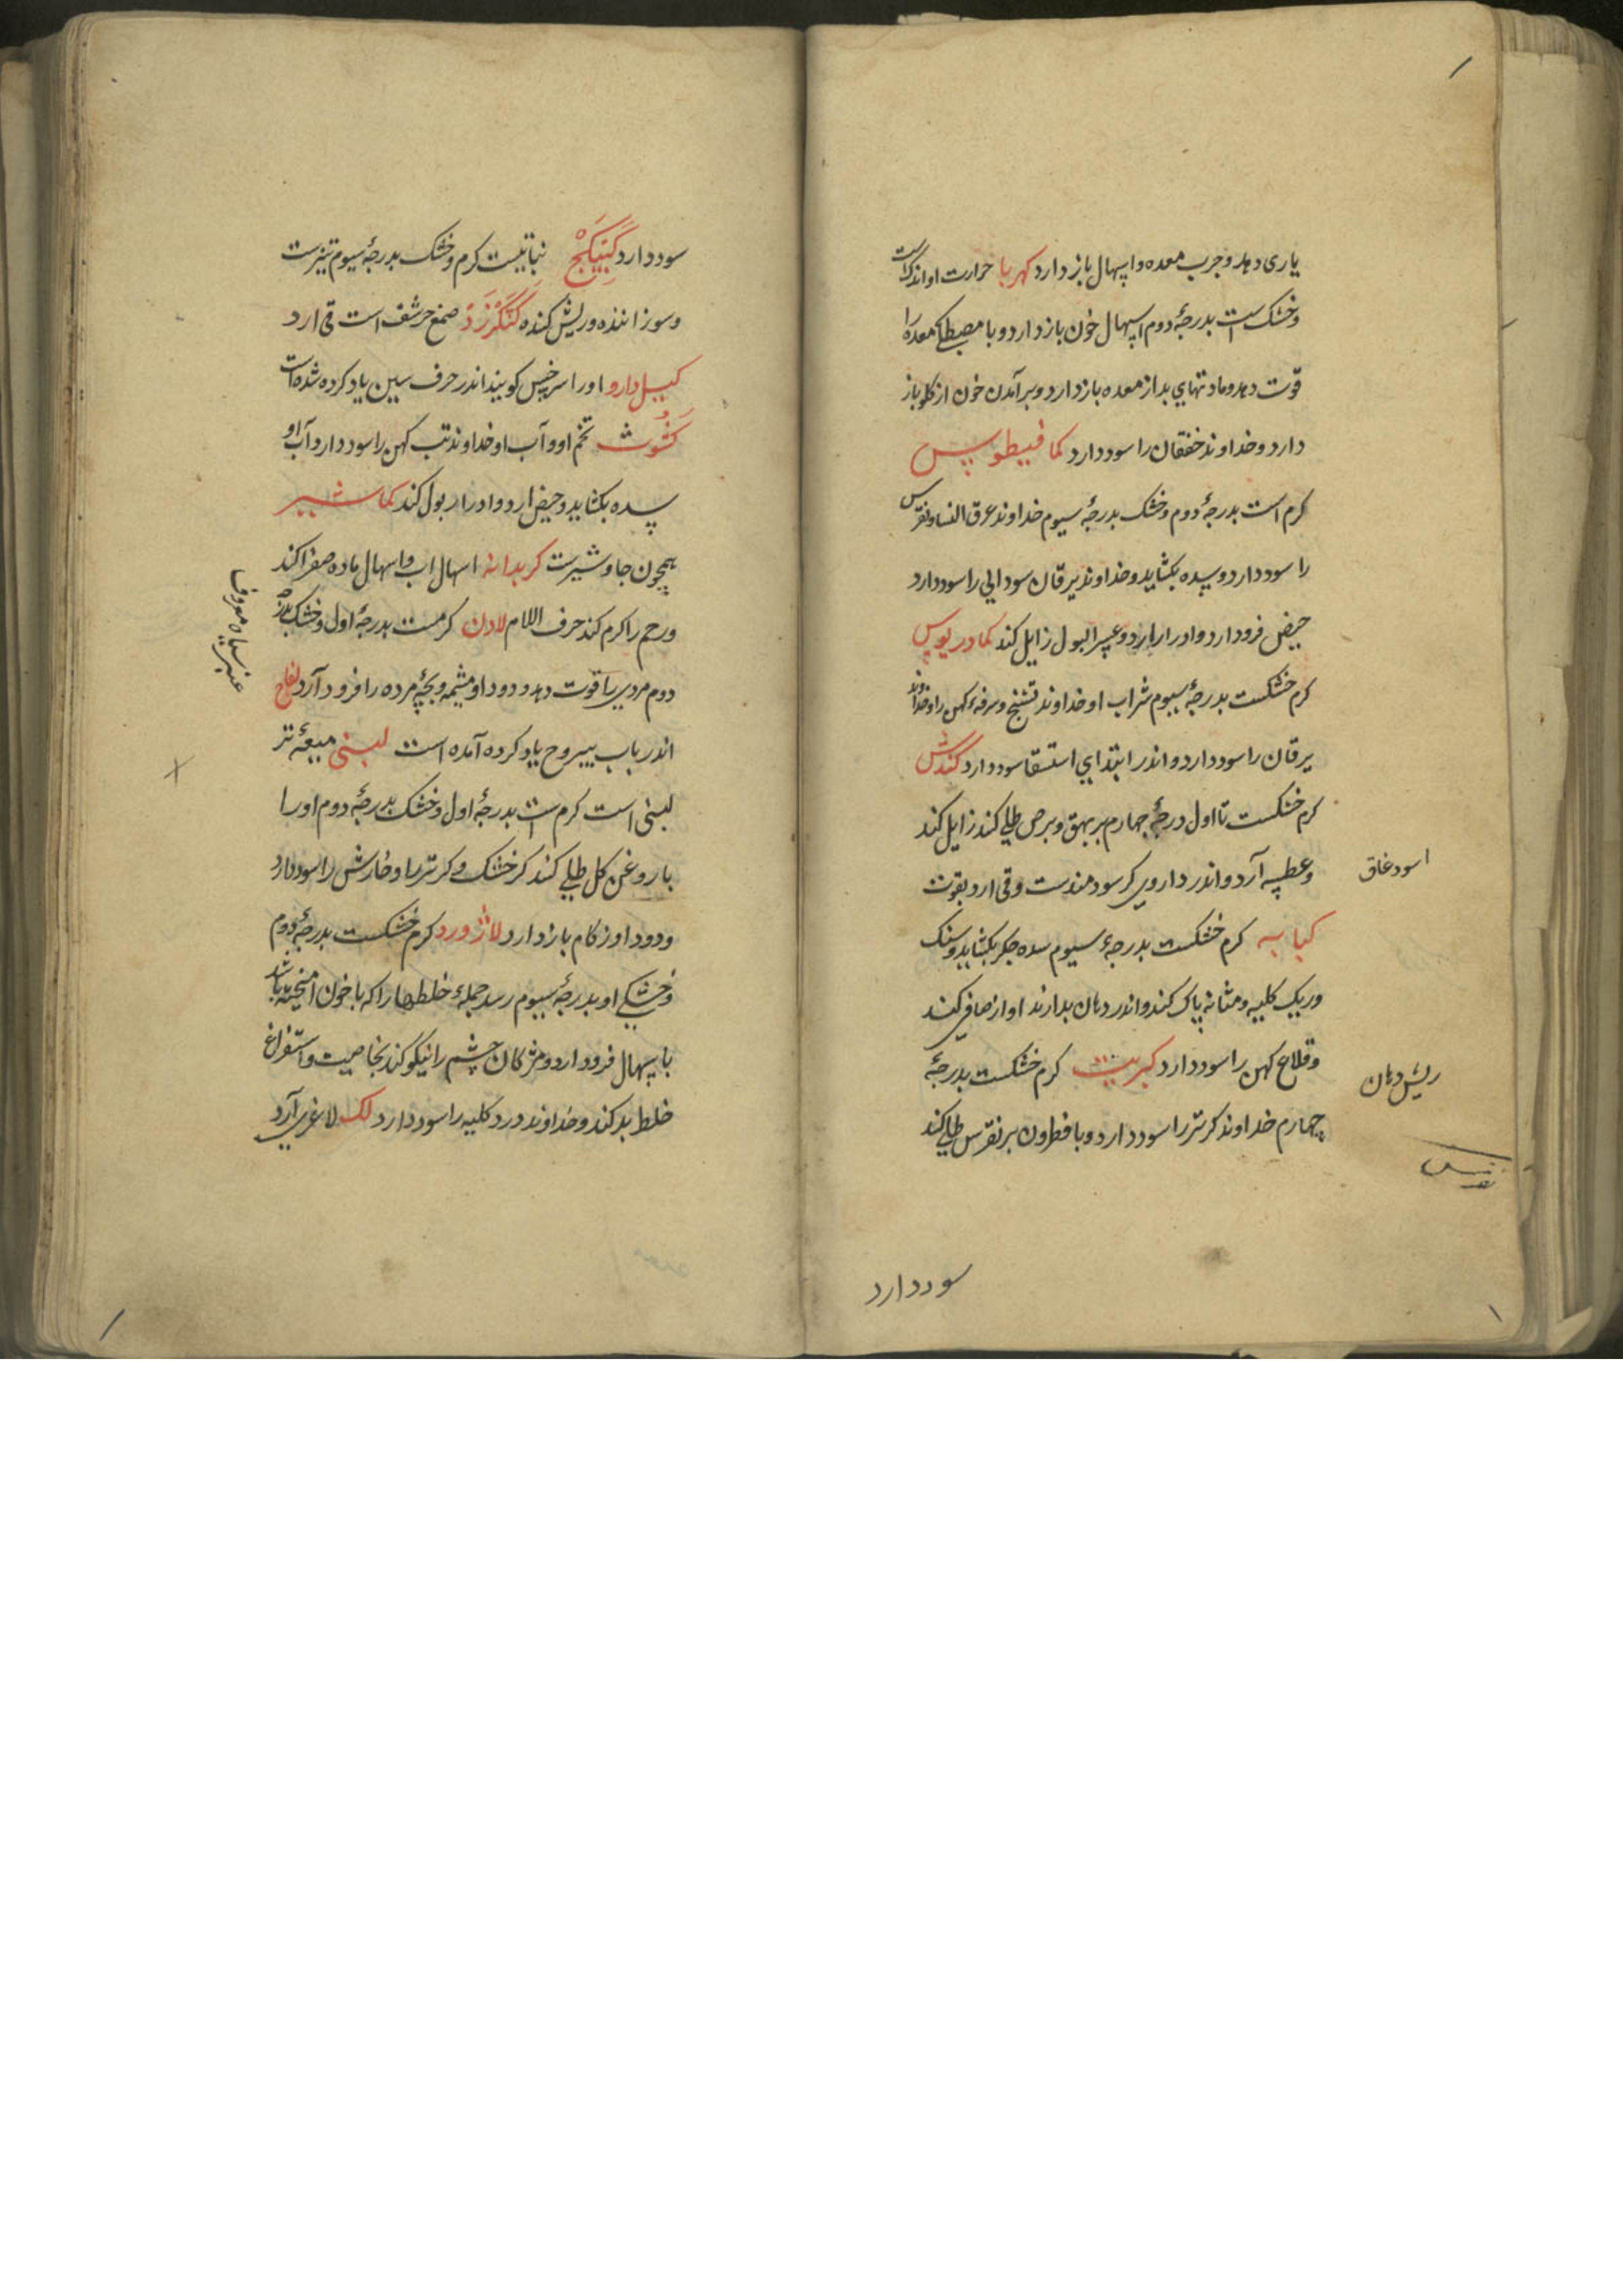 یاری دهد و جرب معده و اسهال باز دارد کهربا حرارت او اندکست
و خشک است بدرجهٔ دوم اسهال خون باز دارد و با مصطکی معده را
قوت دهد و مادتهای بد از معده باز دارد و برآمدن خون از کلو باز
دارد و خداوند خفقان را سود دارد کمافیطوس
کرم است بدرجهٔ دوم و خشک بدرجهٔ سیوم خداوند عرق النسا و نقرس
را سود دارد و سده بکشاید و خداوند یرقان سودایی را سود دارد
حیض فرود ارد و ادرار ارد و عسر البول زایل کند کمادریوس
کرم خشکست بدرجهٔ سیوم شراب او خداوند تشنج و سرفهٔ کهن را و خداوند
یرقان را سود دارد و اندر ابتدای استسقا سود دارد کندش
کرم خشکست تا اول درجهٔ چهارم بر بهق و برص طلی کند زایل کند
و عطسه آرد و اندر داروی کر سودمندست و قی ارد بقوت
اسود غاق
کبابه کرم خشکست بدرجهٔ سیوم سده جکر بکشاید و سنک
و ریک کلیه و مثانه پاک کند و اندر دهان بدارند اواز صافی کند
و قلاع کهن را سود دارد کبریت کرم خشکست بدرجهٔ
ریش دهان
چهارم خداوند کرتر را سود دارد و با فطرون بر نقرس طلی کند
سود دارد
سود دارد کبیکج نباتیست کرم و خشک بدرجهٔ سیوم تیزست
و سوزاننده و ریش کننده کنکرزد صمغ حرشف است قی ارد
کیسل دارو او را سرخس کویند اندر حرف سین یاد کرده شده است
کشوث تخم او و آب او خداوند تب کهن را سود دارد آب او
سده بکشاید و حیض ارد و ادرار بول کند کماشیر
همچون جاوشیرست کربدانه اسهال اب و اسهال ماده صفرا کند
و رحم را کرم کند حرف اللام لادن کرمست بدرجهٔ اول و خشک بدرجه
عنبر سیاه معروف
دوم موی را قوت دهد و دود او مشیمه و بچهٔ مرده را فرود آرد لفاح
اندر باب یبروح یاد کرده آمده است لبنی میعهٔ تر
لبنی است کرم است بدرجهٔ اول و خشک بدرجهٔ دوم او را
با روغن کل طلی کند کر خشک و کرتر را و خارش را سود دارد
و دود او زکام باز دارد لاژورد کرم خشکست بدرجهٔ دوم
و خشکی او بدرجهٔ سیوم رسد جملهٔ خلطها را که با خون امیخته باشد
باسهال فرود ارد و مژکان چشم را نیکو کند بخاصیت و استفراغ
خلط بد کند و خداوند درد کلیه را سود دارد لک لاغری آرد